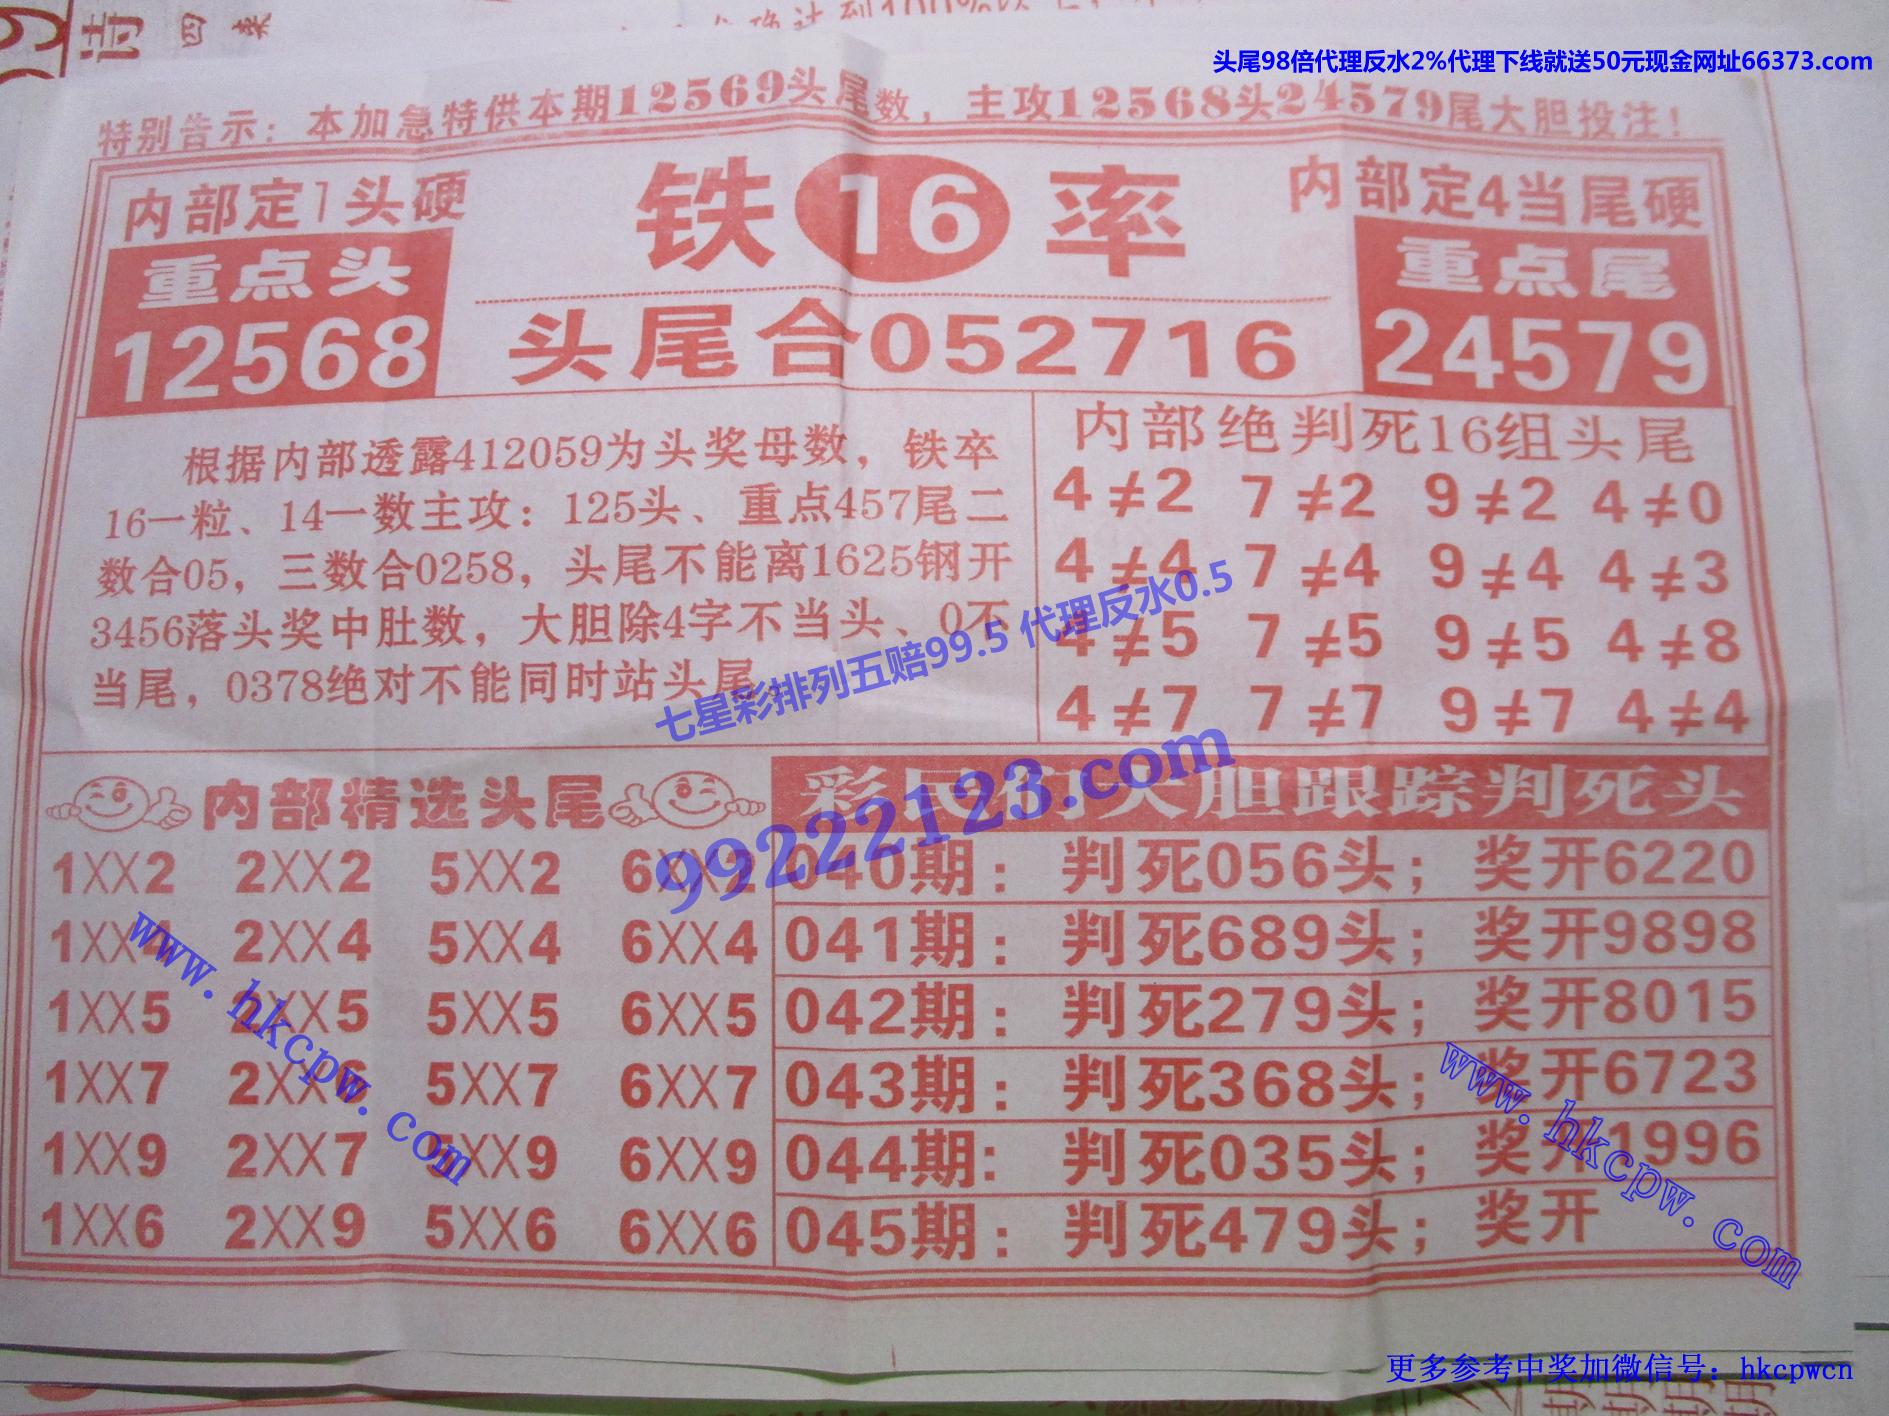 诗
四来
头尾98倍代理反水2%代理下线就送50元现金网址66373.com
特别告示：本加急特供本期12569头尾数，主攻12568头24579尾大胆投注！
内部定1头硬
重点头
12568
铁16率
头尾合052716
内部定4当尾硬
重点尾
24579
根据内部透露412059为头奖母数，铁卒
16一粒、14一数主攻：125头、重点457尾二
数合05，三数合0258，头尾不能离1625钢开
3456落头奖中肚数，大胆除4字不当头、0不
当尾，0378绝对不能同时站头尾。
内部绝判死16组头尾
4≠2 7≠2 9≠2 4≠0
4≠4 7≠4 9≠4 4≠3
4≠5 7≠5 9≠5 4≠8
4≠7 7≠7 9≠7 4≠4
七星彩排列五赔99.5 代理反水0.5
99222123.com
内部精选头尾
1XX2 2XX2 5XX2 6XX2
1XX4 2XX4 5XX4 6XX4
1XX5 2XX5 5XX5 6XX5
1XX7 2XX6 5XX7 6XX7
1XX9 2XX7 5XX9 6XX9
1XX6 2XX9 5XX6 6XX6
彩民们大胆跟踪判死头
040期：判死056头；奖开6220
041期：判死689头；奖开9898
042期：判死279头；奖开8015
043期：判死368头；奖开6723
044期：判死035头；奖开1996
045期：判死479头；奖开
www.hkcpw.com
www.hkcpw.com
更多参考中奖加微信号：hkcpwcn